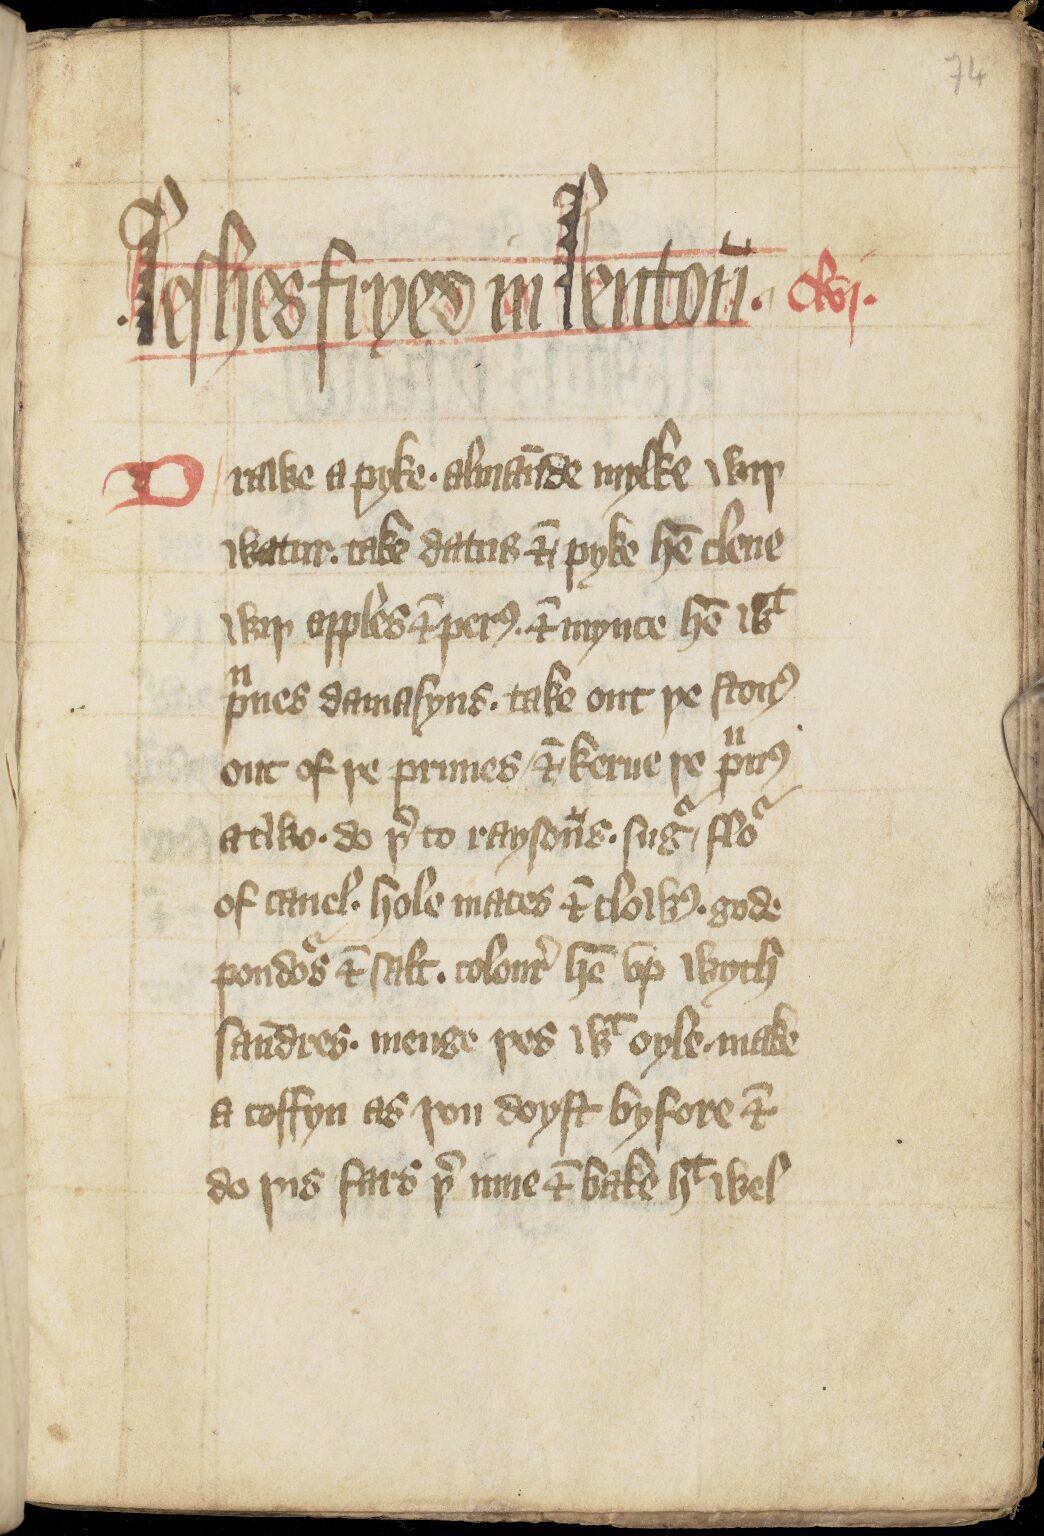 74
·Leshes fryed in lentoū· ·clvi·
Drawe a pyke· almaūde mylke wiþ
watur· take datus & pyke hē clene
wiþ apples & perꝭ· & mynce hē wᵗ
pⁿnes damasyns· take out þe stonꝭ
out of þe prunes / & kerue þe pⁿnꝭ
a two· do þ̉ to raysoūs· sugᵃ / floᵃ
of canel· hole maces & clowꝭ· gode
poudoᵃs & salt· colour̉ hē vp wyth
saūdres· menge þes wᵗ oyle· make
a coffyn as þou doyst byfore &
do þis fars þ̉ inne & bake hᵗ wel